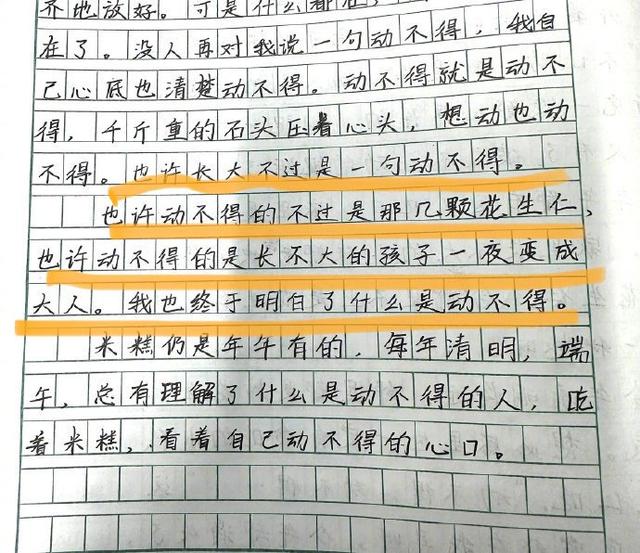 齐地放好。可是什么都在，
在了。没人再对我说一句动不得，我自
己心底也清楚动不得。动不得就是动不
得，千斤重的石头压着心头，想动也动
不得。也许长大不过是一句动不得。
也许动不得的不过是那几颗花生仁，
也许动不得的是长不大的孩子一夜变成
大人。我也终于明白了什么是动不得。
米糕仍是年年有的，每年清明，端
午，总有理解了什么是动不得的人，吃
着米糕，看着自己动不得的心口。